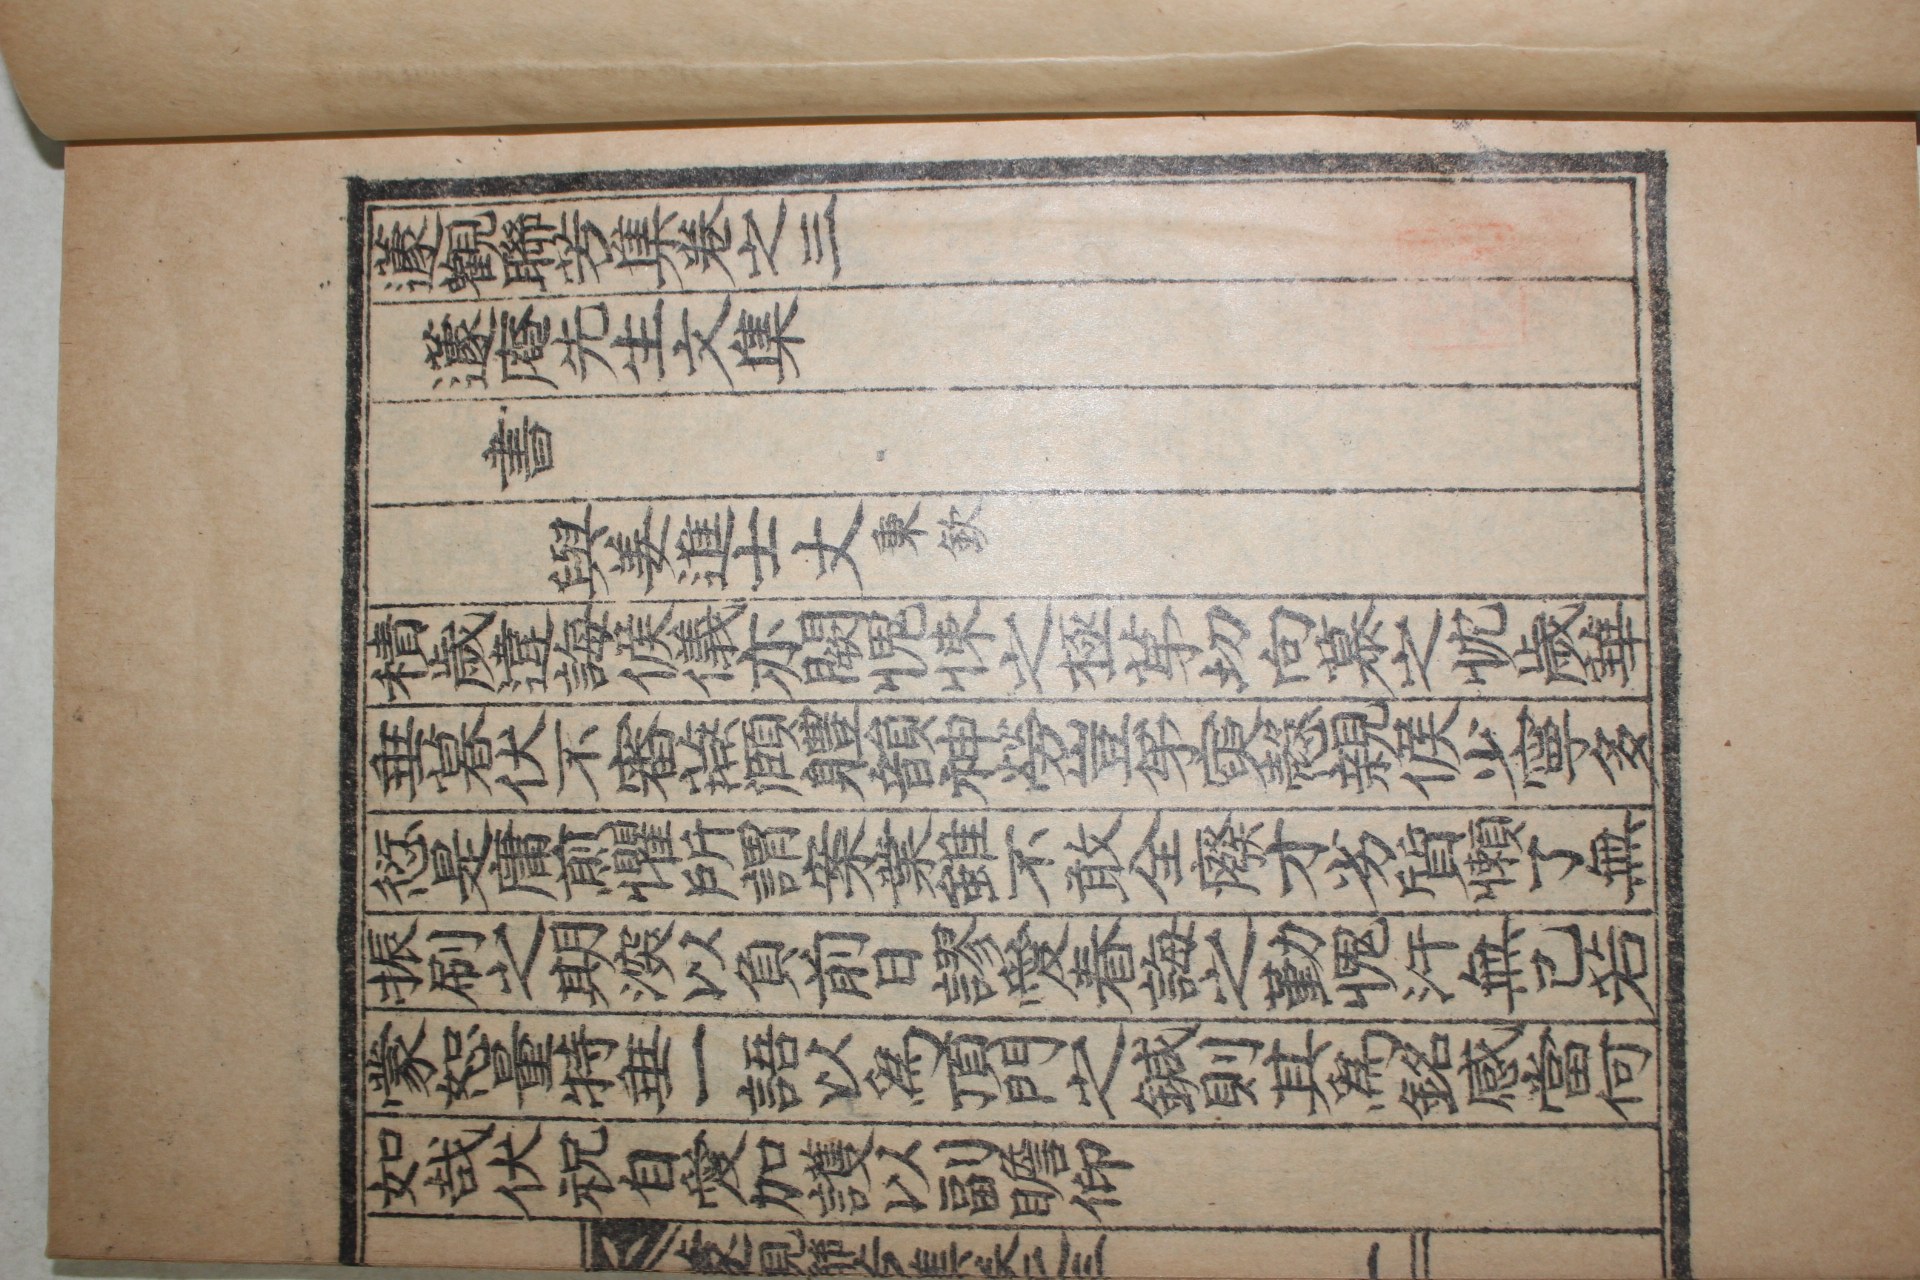 蘧觀聯芳集卷之三
蘧庵先生文集
書
與姜進士丈秉欽
積歲違誨候儀亦闕愧悚之極苐切向慕之忱歲華
垂暮伏不審燕頤體韻神勞豈苐寅慤親候少寧多
愆是庸煎懼所謂案業雖不敢全廢才劣質懶了無
振刷之期深以負前日謬愛眷誨之勤愧汗無已若
蒙恕量特垂一語以爲頂門之鍼則其爲銘感當何
如哉伏祝自愛加護以副瞻仰